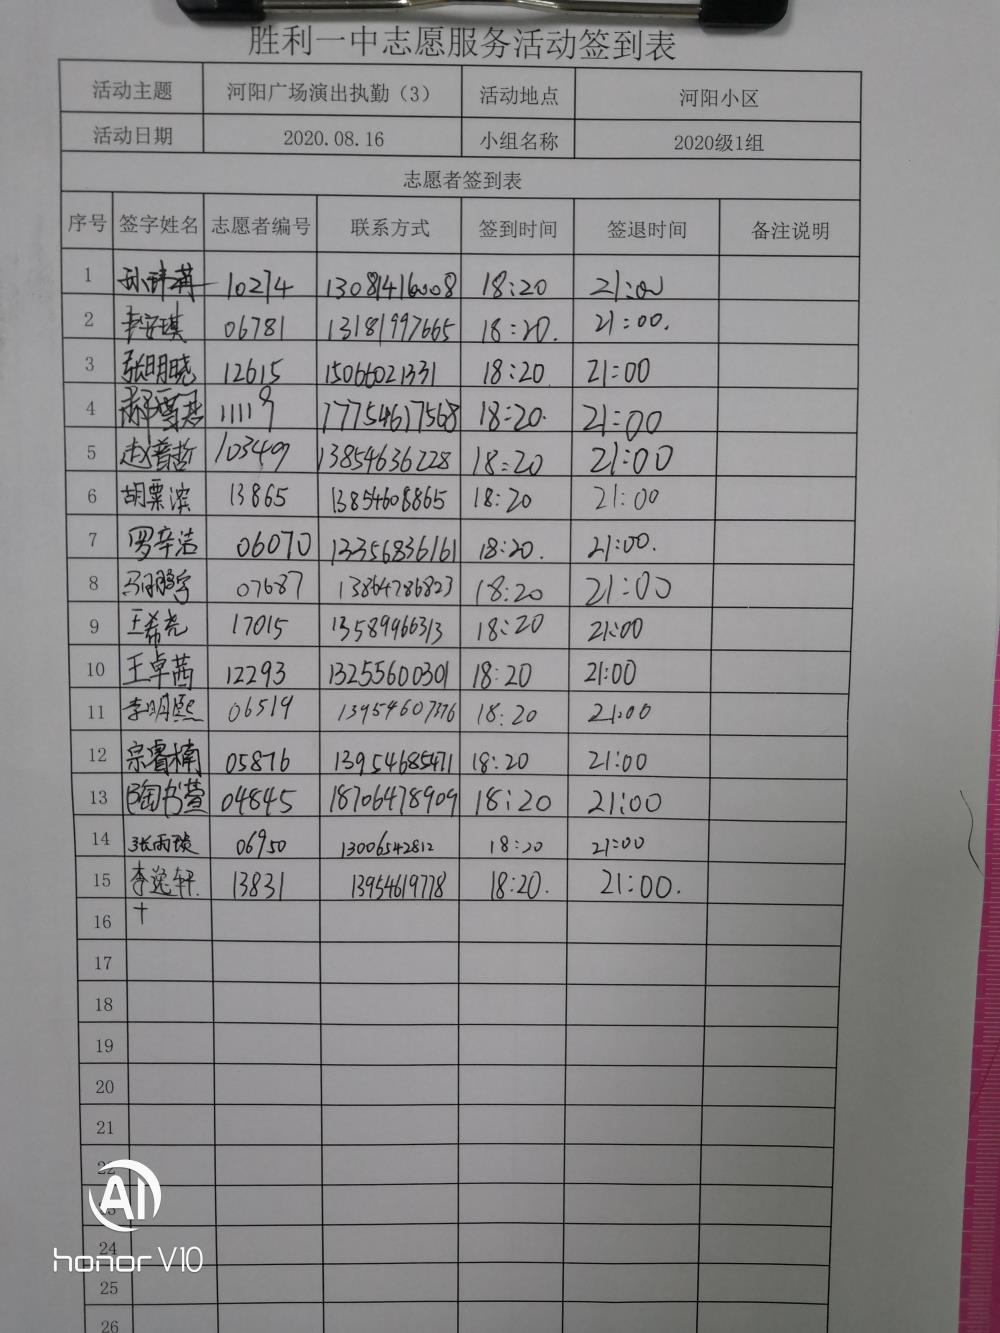 胜利一中志愿服务活动签到表
活动主题 河阳广场演出执勤（3） 活动地点 河阳小区
活动日期 2020.08.16 小组名称 2020级1组
志愿者签到表
序号 签字姓名 志愿者编号 联系方式 签到时间 签退时间 备注说明
1 10274 18:20 21:00
2 李安琪 06781 13181997665 18:20. 21:00.
3 张明晓 12615 15066021331 18:20 21:00
4 11119 17754617568 18:20. 21:00
5 赵普哲 103409 13854636228 18:20 21:00
6 胡粟滨 13865 13854608865 18:20 21:00
7 罗辛洁 06070 13356836161 18:20. 21:00.
8 07687 13864786823 18:20 21:00
9 王希尧 17015 13589966313 18:20 21:00
10 王卓茜 12293 13255600301 18:20 21:00
11 李明熙 06519 13954607376 18:20 21:00
12 宗睿楠 05876 13954685471 18:20 21:00
13 陶书萱 04845 18706478909 18:20 21:00
14 张雨琰 06950 13006542812 18:20 21:00
15 李逸轩. 13831 13954619778 18:20. 21:00.
16
17
18
19
20
21
22
23
24
25
26
AI
honor V10